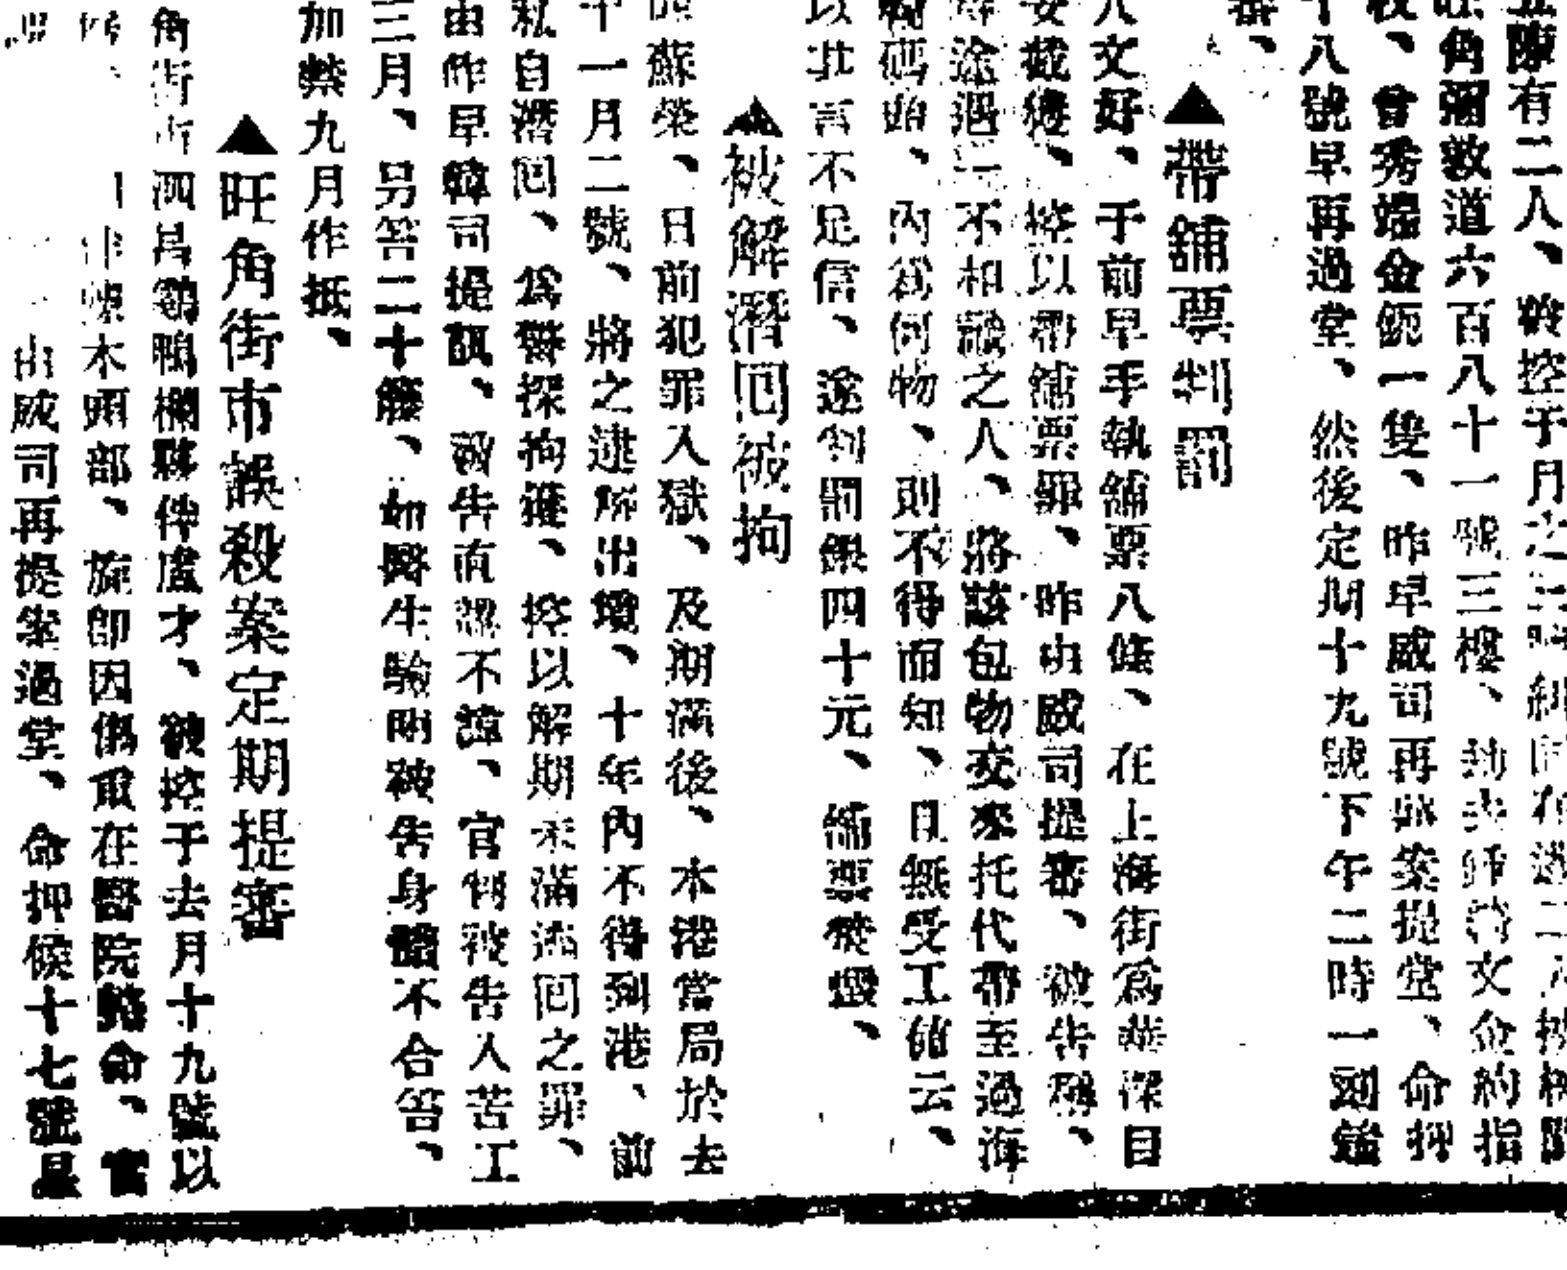 陳有二人、被控于月之
旺角彌敦道六百八十一號三樓、刦去師奶文金約指
枚、曾秀端金鈪一隻、昨早威司再將案提堂、命押
十八號早再過堂、然後定期十九號下午二時一刻鐘
審、
▲帶舖票判罰
八文好、于前早手執舖票八條、在上海街爲華探目
安截獲、控以帶舖票罪、昨由威司提審、被告稱、
途遇一不相識之人、將該包物交來托代帶至過海
碼頭、內爲何物、則不得而知、且無受工値云、
以其言不足信、遂判罰銀四十元、舖票焚燬、
▲被解潛回被拘
蘇榮、日前犯罪入獄、及期滿後、本港當局於去
十一月二號、將之遞解出境、十年內不得到港、前
私自潛回、爲暗探拘獲、控以解期未滿潛回之罪、
由昨早韓司提訊、被告直認不諱、官判被告人苦工
三月、另笞二十籐、如醫生驗明被告身體不合笞、
加禁九月作抵、
▲旺角街市誤殺案定期提審
角街市泗昌鷄鴨欄夥伴盧才、被控于去月十九號以
木頭部、旋卽因傷重在醫院斃命、官
由威司再提案過堂、命押候十七號晨